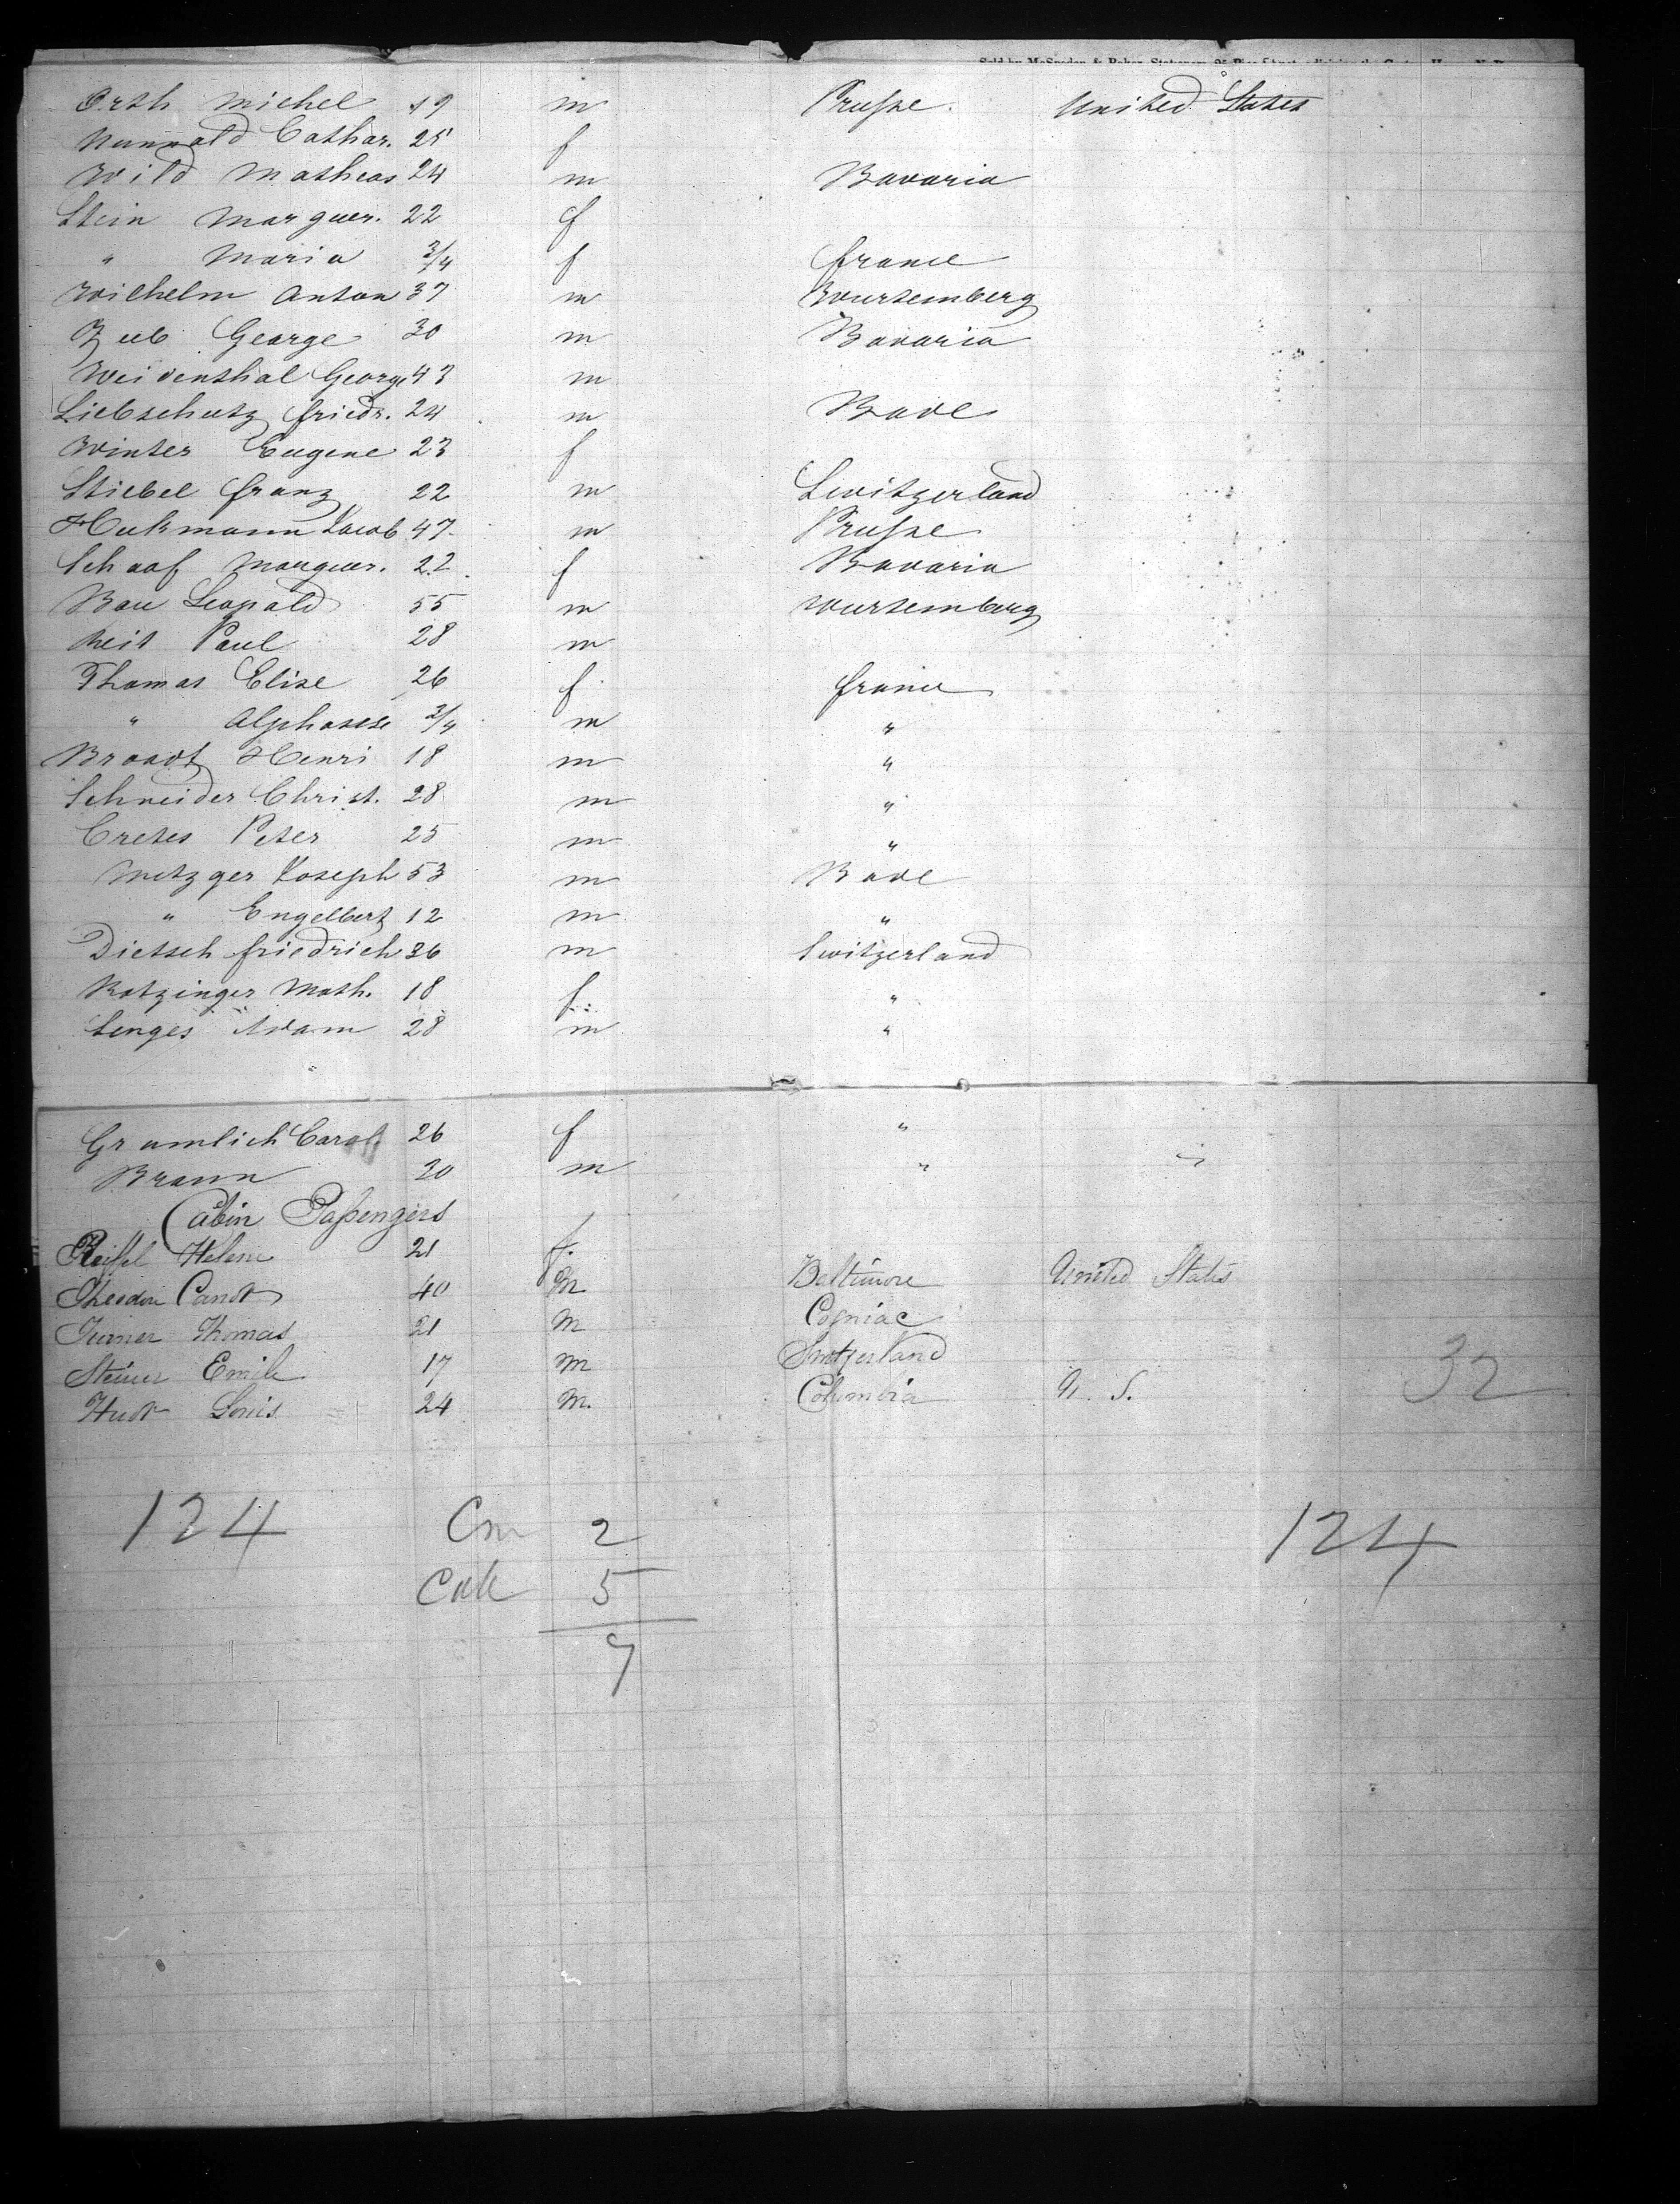 Orth Michel 19 m Prusse United States
Nunnold Cathar. 25 f
Wild Matheas 24 m Bavaria
Stein Marguer. 22 f
" Maria 3/4 f france
Wilhelm Anton 37 m Wurtemberg
Zub George 30 m Bavaria
Weidenthal George 43 m
Liebschutz friedr. 24 m Bade
Winter Eugene 23 f
Stiebel franz 22 m Switzerland
Huckmann Jacob 47 m Prusse
Schaaf Marguer. 22 f Bavaria
Bau Leopold 55 m Wurtemberg
Neit Paul 28 m
Thomas Elise 26 f france
" Alphonse 3/4 m "
Braadt Henri 18 m "
Schneider Christ. 28 m "
Cretes Peter 25 m "
Metzger Joseph 53 m Bade
" Engelbert 12 m "
Dietsch friedrich 36 m Switzerland
Ratzinger Math. 18 f "
Senges Adam 28 m "
Gramlich Carol 26 f "
Braun 20 m " "
Cabin Passengers
Helene 21 f.
Theodore Canot 40 M Baltimore United States
Turner Thomas 21 M Cogniac
Steiner Emile 17 M Switzerland
Louis 24 M. Columbia U. S.
32
124 2 124
5
7